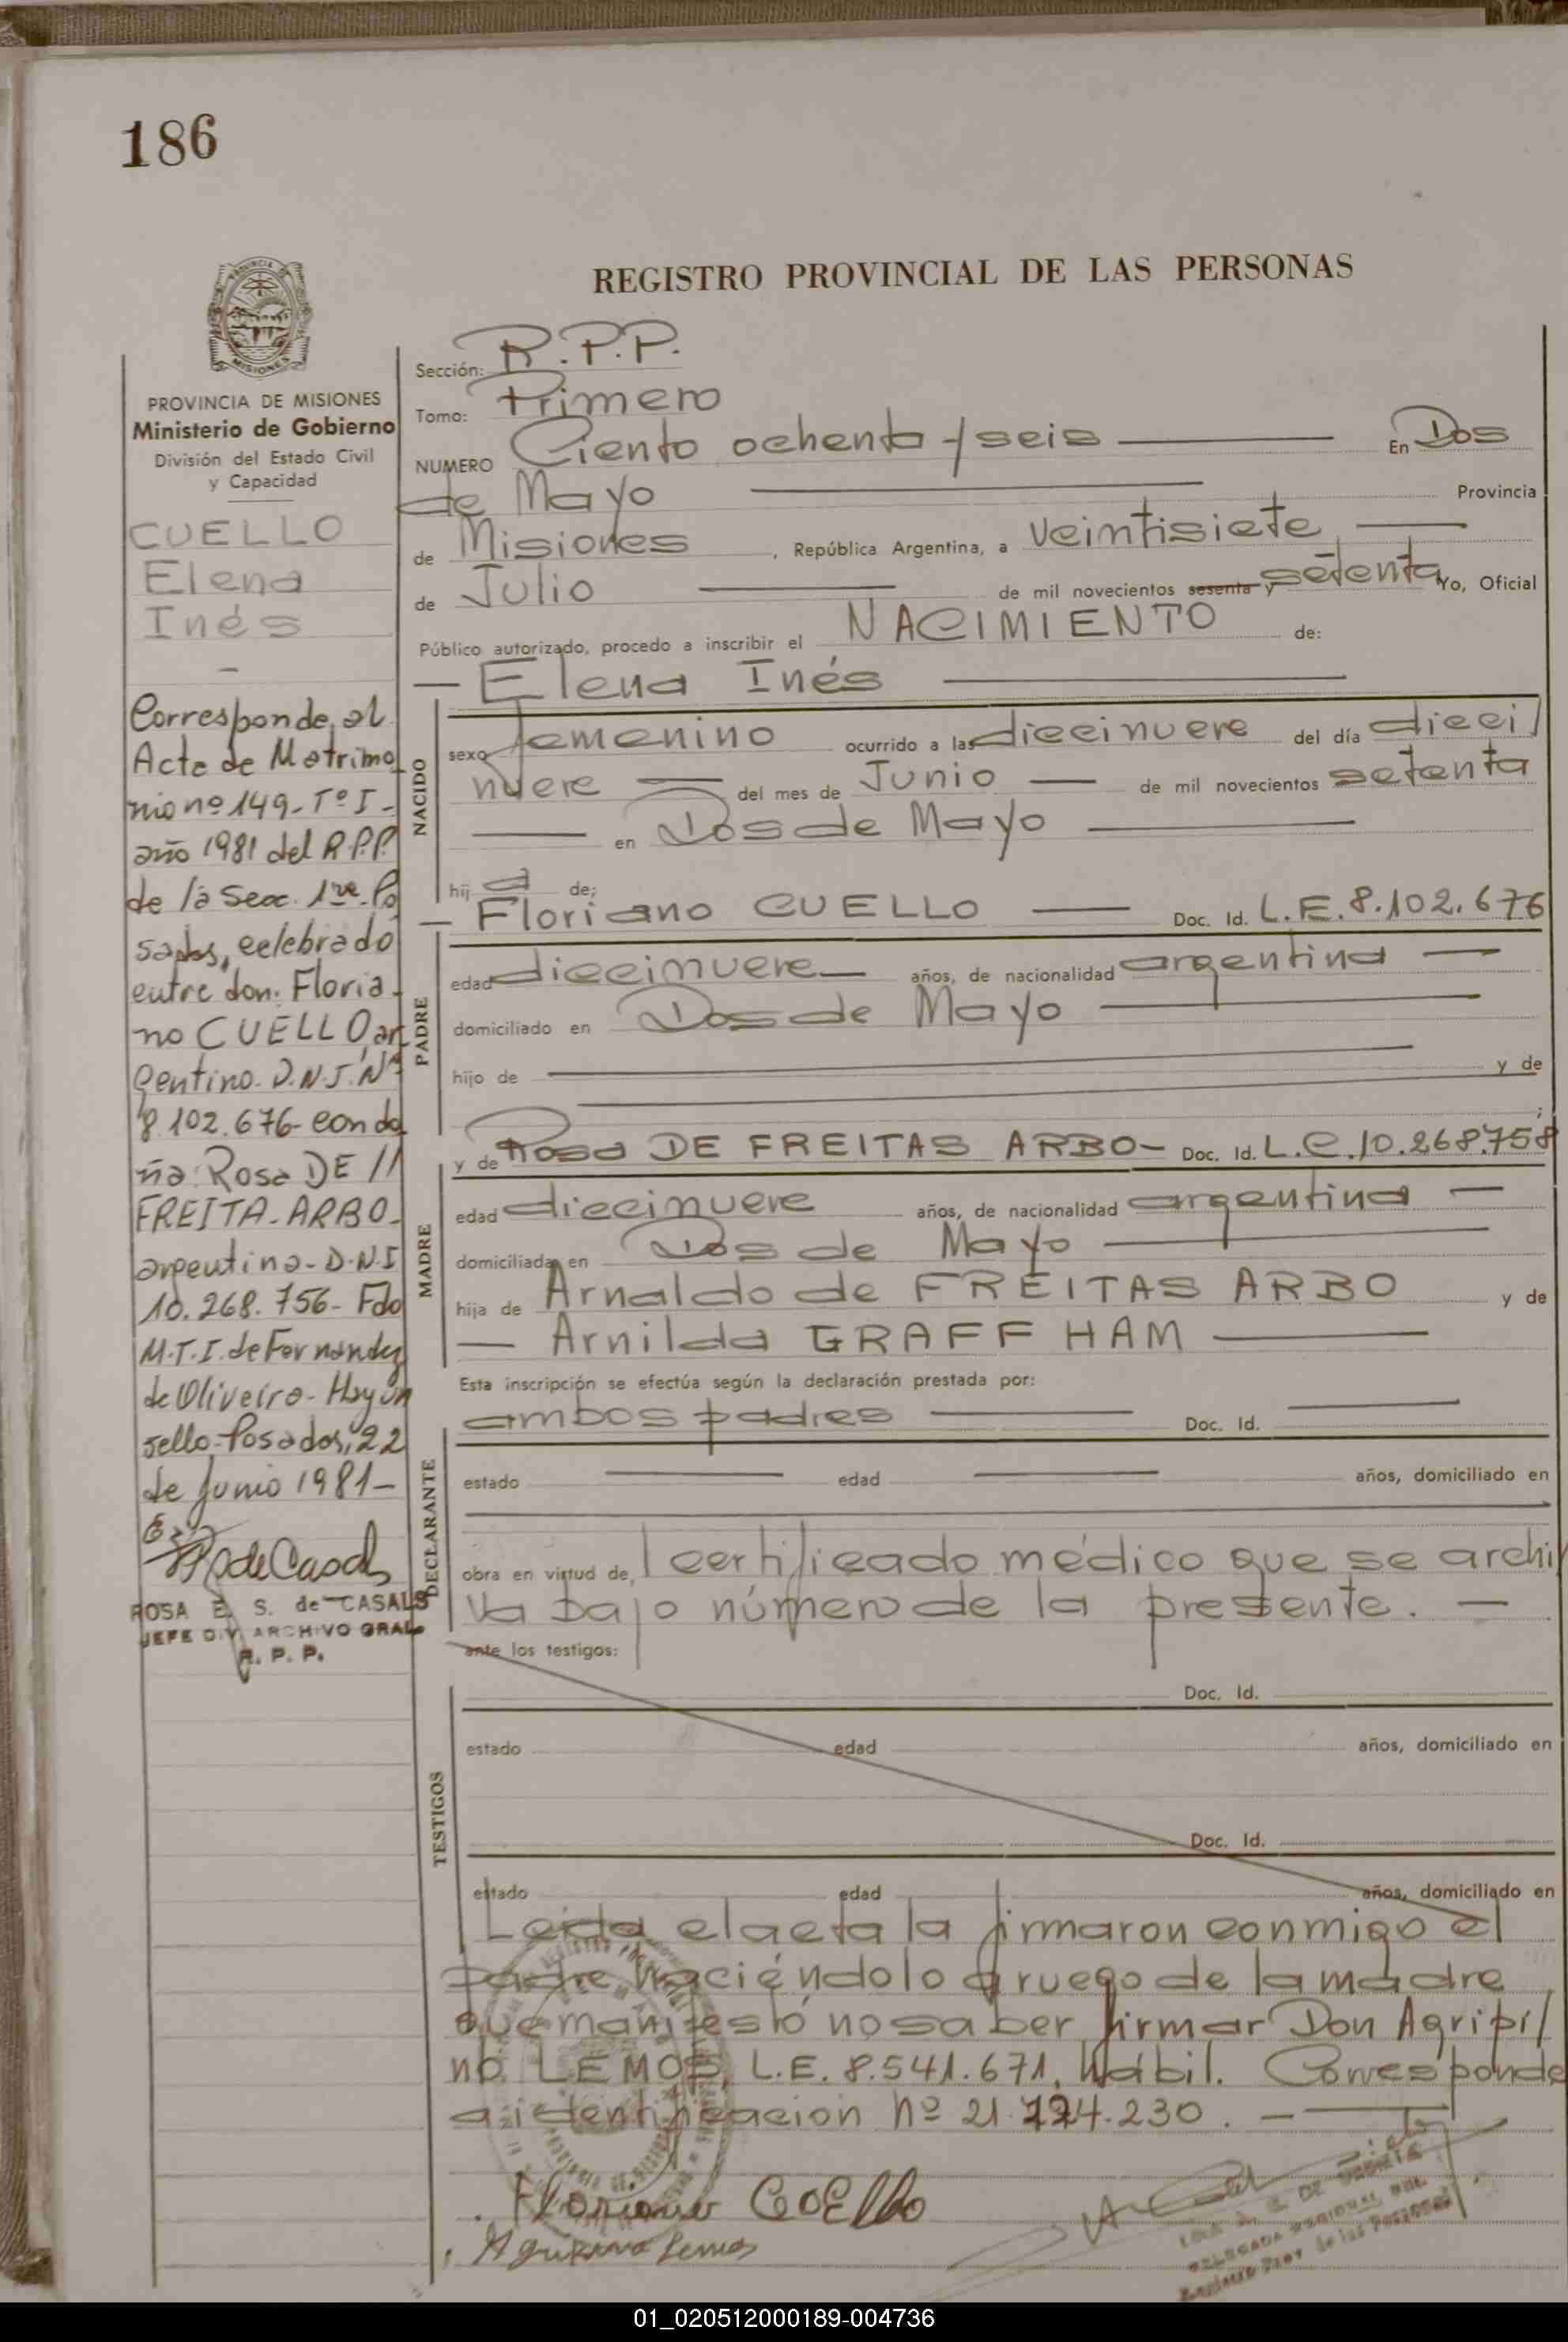 186
REGISTRO PROVINCIAL DE LAS PERSONAS
PROVINCIA DE MISIONES
Ministerio de Gobierno
División del Estado Civil
y Capacidad
CUELLO
Elena
Inés
Corresponde al
Acta de Matrimo
nio nº 149-Tº I-
año 1981 del R.P.P.
de la Secc. 1ra. Po
sadas, celebrado
entre don: Floria-
no CUELLO, ar
gentino. D.N.I. Nº
8.102.676- con do
ña: Rosa DE //
FREITA-ARBO-
argentina-D.N.I
10.268.756- Fdo
M.T.I. de Fernandez
de Oliveira- Hay un
sello-Posadas, 22
de Junio 1981-
de Casals
ROSA E. S. de CASALS
JEFE DIV. ARCHIVO GRAL.
R. P. P.
Sección: R.P.P.
Tomo: Primero
NUMERO Ciento ochenta y seis En Dos
de Mayo Provincia
de Misiones, República Argentina, a veintisiete
de Julio de mil novecientos sesenta y setenta Yo, Oficial
Público autorizado, procedo a inscribir el NACIMIENTO de:
— Elena Inés —
NACIDO
sexo femenino ocurrido a las diecinueve del día dieci/
nueve — del mes de Junio — de mil novecientos setenta
— en Dos de Mayo —
hij a de:
— Floriano CUELLO — Doc. Id. L.E. 8.102.676
PADRE
edad diecinueve — años, de nacionalidad argentina —
domiciliado en Dos de Mayo —
hijo de — y de
— ;
y de Rosa DE FREITAS ARBO- Doc. Id. L.C. 10.268.758
MADRE
edad diecinueve años, de nacionalidad argentina —
domiciliada en Dos de Mayo —
hija de Arnaldo de FREITAS ARBO y de
— Arnilda GRAFF HAM —
Esta inscripción se efectúa según la declaración prestada por:
ambos padres — Doc. Id. —
DECLARANTE
estado — edad — años, domiciliado en
obra en virtud de l certificado médico que se archi/
va bajo número de la presente. —
ante los testigos:
Doc. Id.
TESTIGOS
estado edad años, domiciliado en
Doc. Id.
estado edad años, domiciliado en
Leída el acta la firmaron conmigo el
padre, haciéndolo a ruego de la madre
que manifestó no saber firmar Don Agripi/
no LEMOS, L.E. 8.541.671, hábil. Corresponde
a identificación nº 21.724.230. —
Floriano COEllo
Lemos
DELEGADA REGIONAL DEL
Registro Prov. de las Personas
01_020512000189-004736